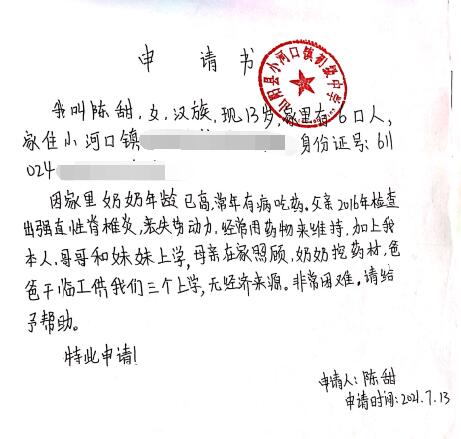 申请书
山阳县小河口镇初级中学
我叫陈甜,女,汉族,现13岁,家里有6口人,
家住小河口镇 身份证号:611
024
因家里奶奶年龄已高,常年有病吃药。父亲2016年检查
出强直性脊椎炎,丧失劳动力,经常用药物来维持,加上我
本人,哥哥和妹妹上学,母亲在家照顾,奶奶挖药材,爸
爸干临工供我们三个上学,无经济来源。非常困难。请给
予帮助。
特此申请!
申请人:陈甜
申请时间:2021.7.13